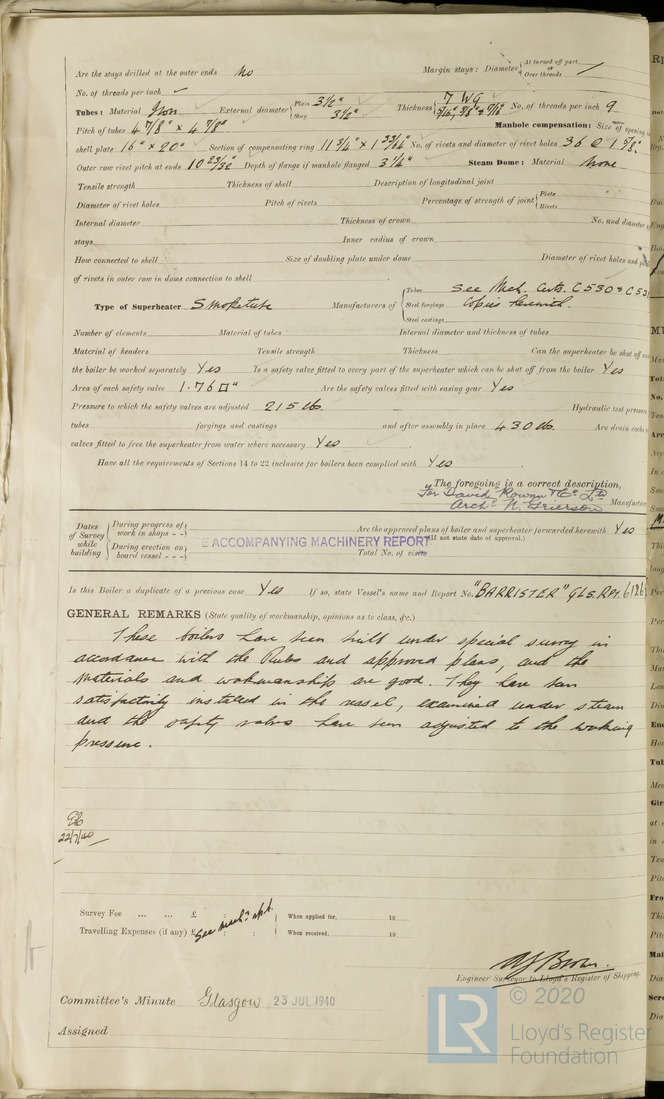 Are the stays drilled at the outer ends No Margin stays: Diameter { At turned off part, or Over threads
No. of threads per inch
Tubes: Material Iron External diameter { Plain 3 1/2" Stay 3 1/2" Thickness { 7 WG 5/16", 3/8" & 7/16 No. of threads per inch 9
Pitch of tubes 4 7/8" × 4 7/8" Manhole compensation: Size of opening in
shell plate 16" × 20" Section of compensating ring No. of rivets and diameter of rivet holes 36 @
Outer row rivet pitch at ends 10 23/32" Depth of flange if manhole flanged 3 1/4" Steam Dome: Material None
Tensile strength Thickness of shell Description of longitudinal joint
Diameter of rivet holes Pitch of rivets Percentage of strength of joint { Plate Rivets
Internal diameter Thickness of crown No. and diameter
stays Inner radius of crown
How connected to shell Size of doubling plate under dome Diameter of rivet holes and
of rivets in outer row in dome connection to shell
Type of Superheater Smoketube Manufacturers of { Tubes Steel forgings Steel castings See Mch. Certs. C530 & C53
copies herewith.
Number of elements Material of tubes Internal diameter and thickness of tubes
Material of headers Tensile strength Thickness Can the superheater be shut off
the boiler be worked separately Yes Is a safety valve fitted to every part of the superheater which can be shut off from the boiler Yes
Area of each safety valve 1.76 □" Are the safety valves fitted with easing gear Yes
Pressure to which the safety valves are adjusted 215 lbs. Hydraulic test pressure
tubes forgings and castings and after assembly in place 430 lbs. Are drain cocks
valves fitted to free the superheater from water where necessary Yes
Have all the requirements of Sections 14 to 22 inclusive for boilers been complied with Yes
The foregoing is a correct description,
For David Rowan & Co Ltd
Archd. N. Grierson Manufact
Dates of Survey while building { During progress of work in shops - - } { During erection on board vessel - - - }
E ACCOMPANYING MACHINERY REPORT
Are the approved plans of boiler and superheater forwarded herewith Yes
(If not state date of approval.)
Total No. of visits
Is this Boiler a duplicate of a previous case Yes If so, state Vessel's name and Report No. "BARRISTER" GLS. Rpt.
GENERAL REMARKS (State quality of workmanship, opinions as to class, &c.)
These boilers have been built under special survey in
accordance with the Rules and approved plans, and the
materials and workmanship are good. They have been
satisfactorily installed in the vessel, examined under steam
and the safety valves have been adjusted to the working
pressure.
22/7/40
Survey Fee ... ... £ : : When applied for, 19
Travelling Expenses (if any) £ : : When received, 19
See mach: rpt.
Engineer Surveyor to Lloyd's Register of Shipping.
Committee's Minute Glasgow 23 JUL 1940
Assigned
LR © 2020
Lloyd's Register
Foundation